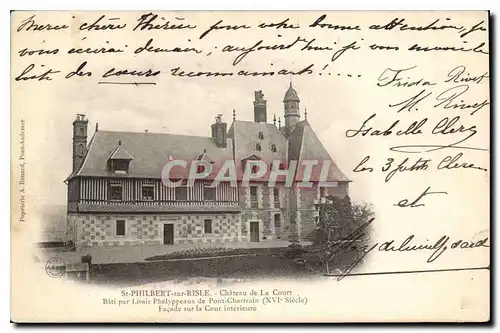 Merci chère Thérèse pour votre bonne attention, je
vous écrirai demain, aujourd'hui je vous envoie
liste des cœurs reconnaissants ....
Frida Rivet
M. Rivet
Isabelle Clerc
les 3 petits Clerc
et
Papeterie A. Renard, Pont-Audemer
CPARAMA
St-PHILBERT-sur-RISLE. - Château de La Court
Bâti par Louis Phelyppeaux de Pont-Chartrain (XVIe Siècle)
Façade sur la Cour intérieure